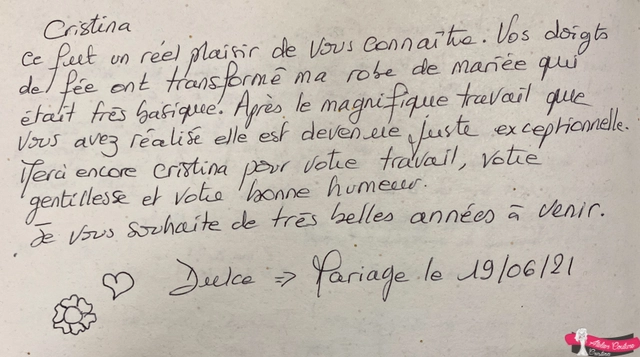 Cristina
ce fut un réel plaisir de vous connaître. Vos doigts
de fée ont transformé ma robe de mariée qui
était très basique. Après le magnifique travail que
vous avez réalisé elle est devenue juste exceptionnelle.
Merci encore Cristina pour votre travail, votre
gentillesse et votre bonne humeur.
Je vous souhaite de très belles années à venir.
Dulce => Mariage le 19/06/21
Atelier Couture
Cristina